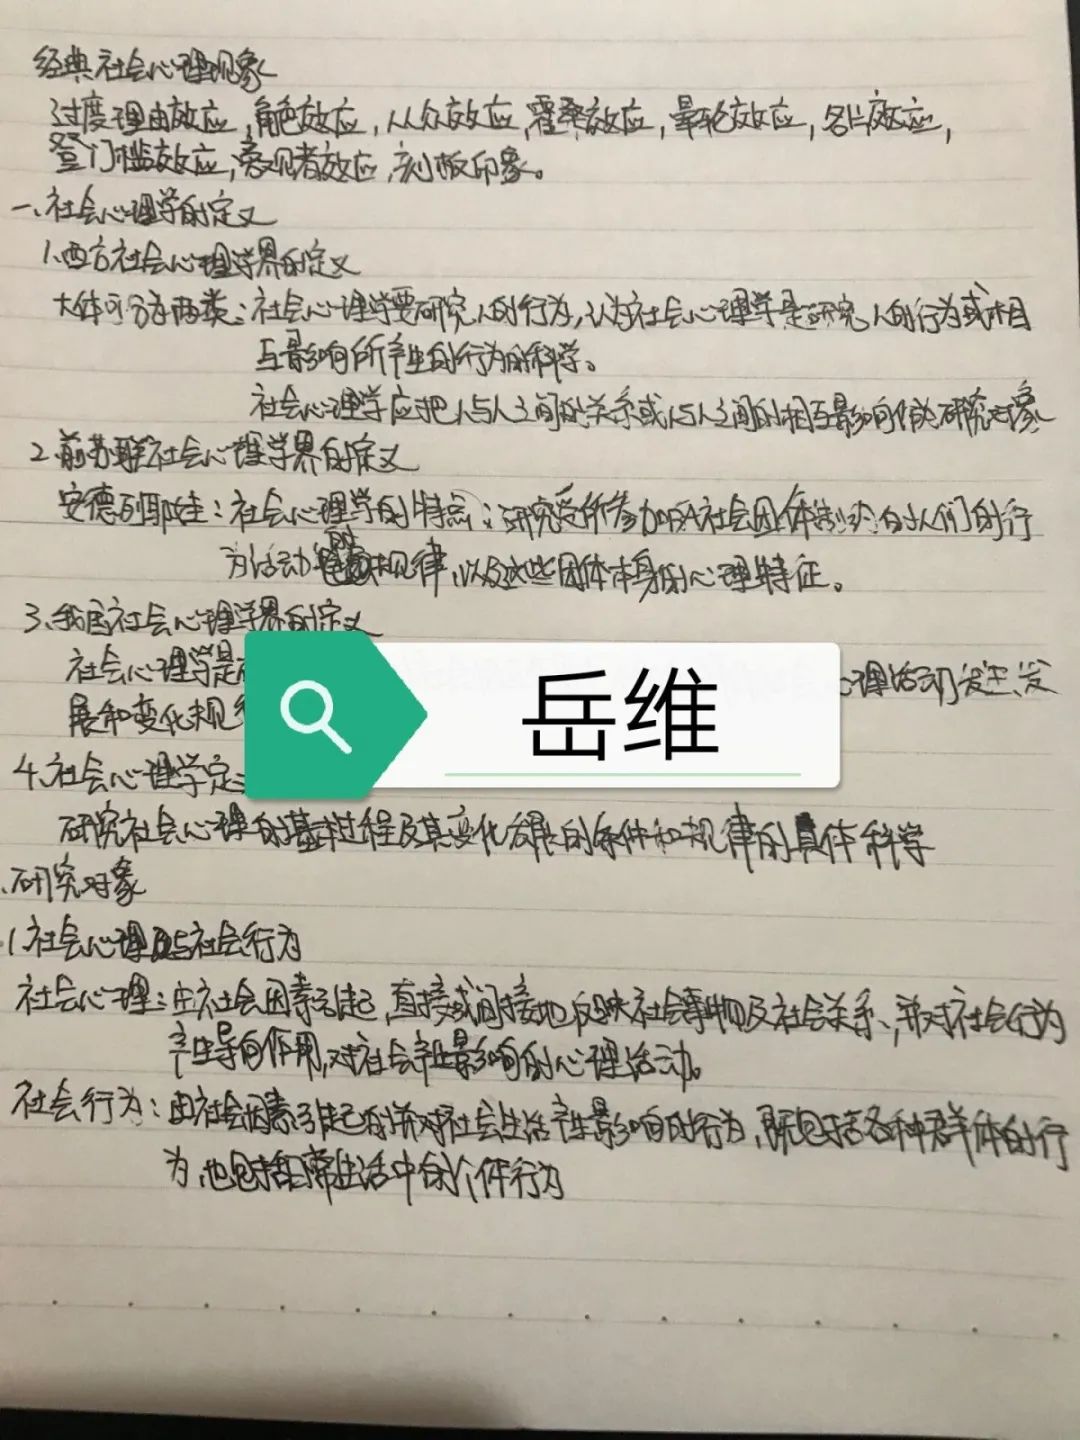 经典社会心理现象
过度理由效应,角色效应,从众效应,霍桑效应,晕轮效应,名片效应,
登门槛效应,旁观者效应,刻板印象。
一、社会心理学的定义
1.西方社会心理学界的定义
大体可分为两类:社会心理学要研究人的行为,认为社会心理学是研究人的行为或相
互影响所产生的行为的科学。
社会心理学应把人与人之间的关系或人与人之间的相互影响作为研究对象
2.前苏联社会心理学界的定义
安德列耶娃:社会心理学的特点:研究受所参加的社会团体制约的人们的行
为活动的规律,以及这些团体本身的心理特征。
3.我国社会心理学界的定义
社会心理学是
心理活动发生、发
展和变化规
岳维
4.社会心理学定
研究社会心理的基本过程及其变化发展的条件和规律的具体科学
.研究对象
1.社会心理与社会行为
社会心理:由社会因素引起,直接或间接地反映社会事物及社会关系、并对社会行为
产生导向作用,对社会产生影响的心理活动。
社会行为:由社会因素引起的并对社会生活产生影响的行为,既包括各种群体的行
为,也包括日常生活中的个体行为